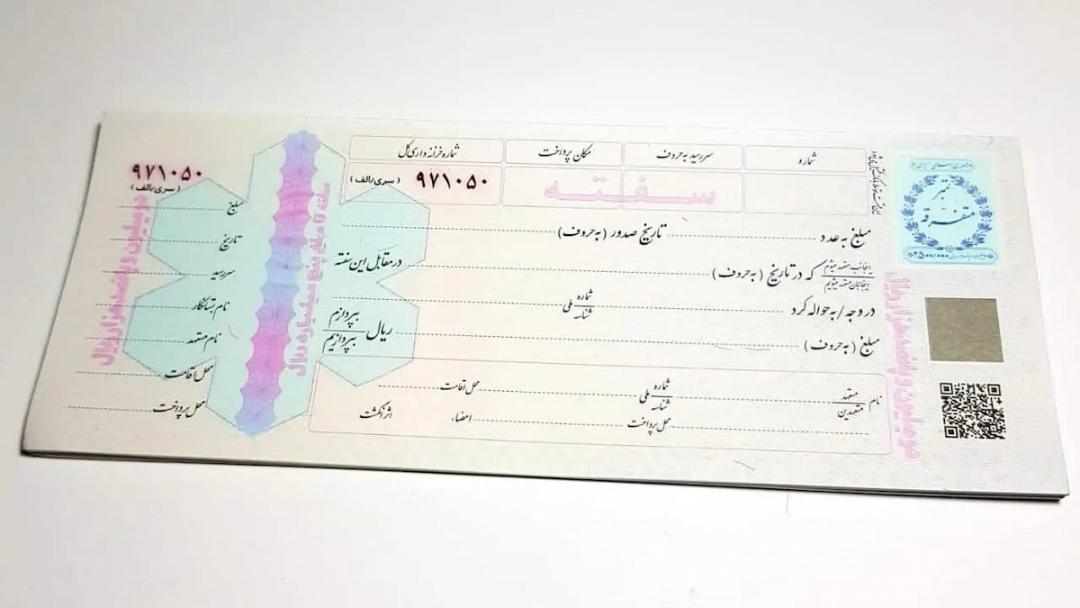 شماره
سررسید به حروف
مکان پرداخت
شماره خزانه داری کل
سفته
۹۷۱۰۵۰
(سری/الف)
مبلغ به عدد
تاریخ صدور (به حروف)
اینجانب متعهد میشوم
اینجانبان متعهد میشویم
که در تاریخ (به حروف)
در مقابل این سفته
در وجه / به حواله کرد
شماره ملی
شناسه
مبلغ (به حروف)
ریال
بپردازم
بپردازیم
نام متعهد
متعهدین
شماره ملی
شناسه
محل اقامت
محل پرداخت
امضاء
اثر انگشت
سفته تا مبلغ پنج میلیارد ریال
جمهوری اسلامی ایران
تمبر
متفرقه
۲۵۰۰/۰۰۰
دو میلیون و پانصد هزار ریال
۹۷۱۰۵۰
(سری/الف)
مبلغ
تاریخ
سررسید
نام بستانکار
نام متعهد
محل اقامت
محل پرداخت
دو میلیون و پانصد هزار ریال